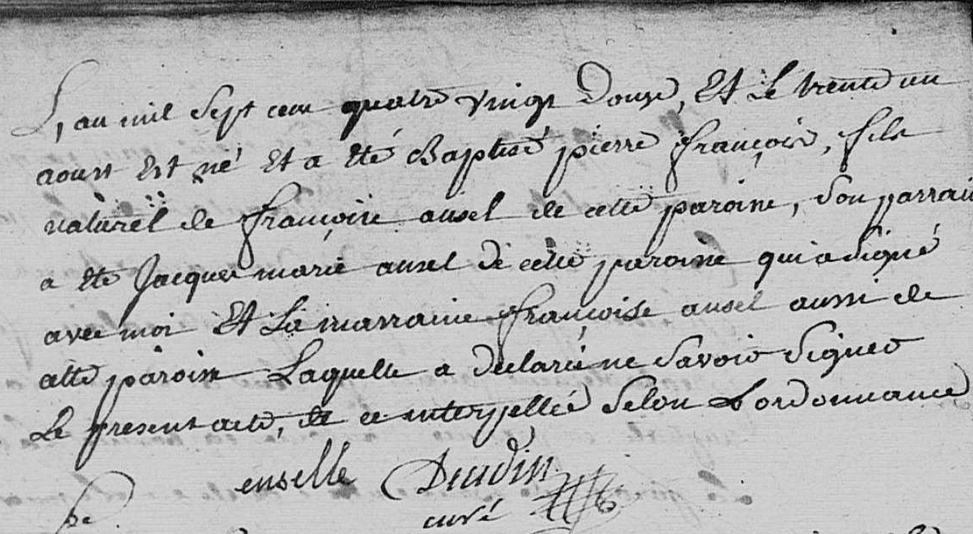 L'an mil Sept cent quatre vingt Douze, Et Le trente un
aoust Est né Et a Eté Baptisé pierre françois, fils
naturel de françoise ansel de cette paroisse, Son parrain
a Eté Jacques marie ansel de cette paroisse qui a Signé
avec moi Et La marraine françoise ansel aussi de
cette paroisse Laquelle a declaré ne Savoir Signer
Le present acte, de ce interpellée Selon L'ordonnance
enselle Daudin
curé